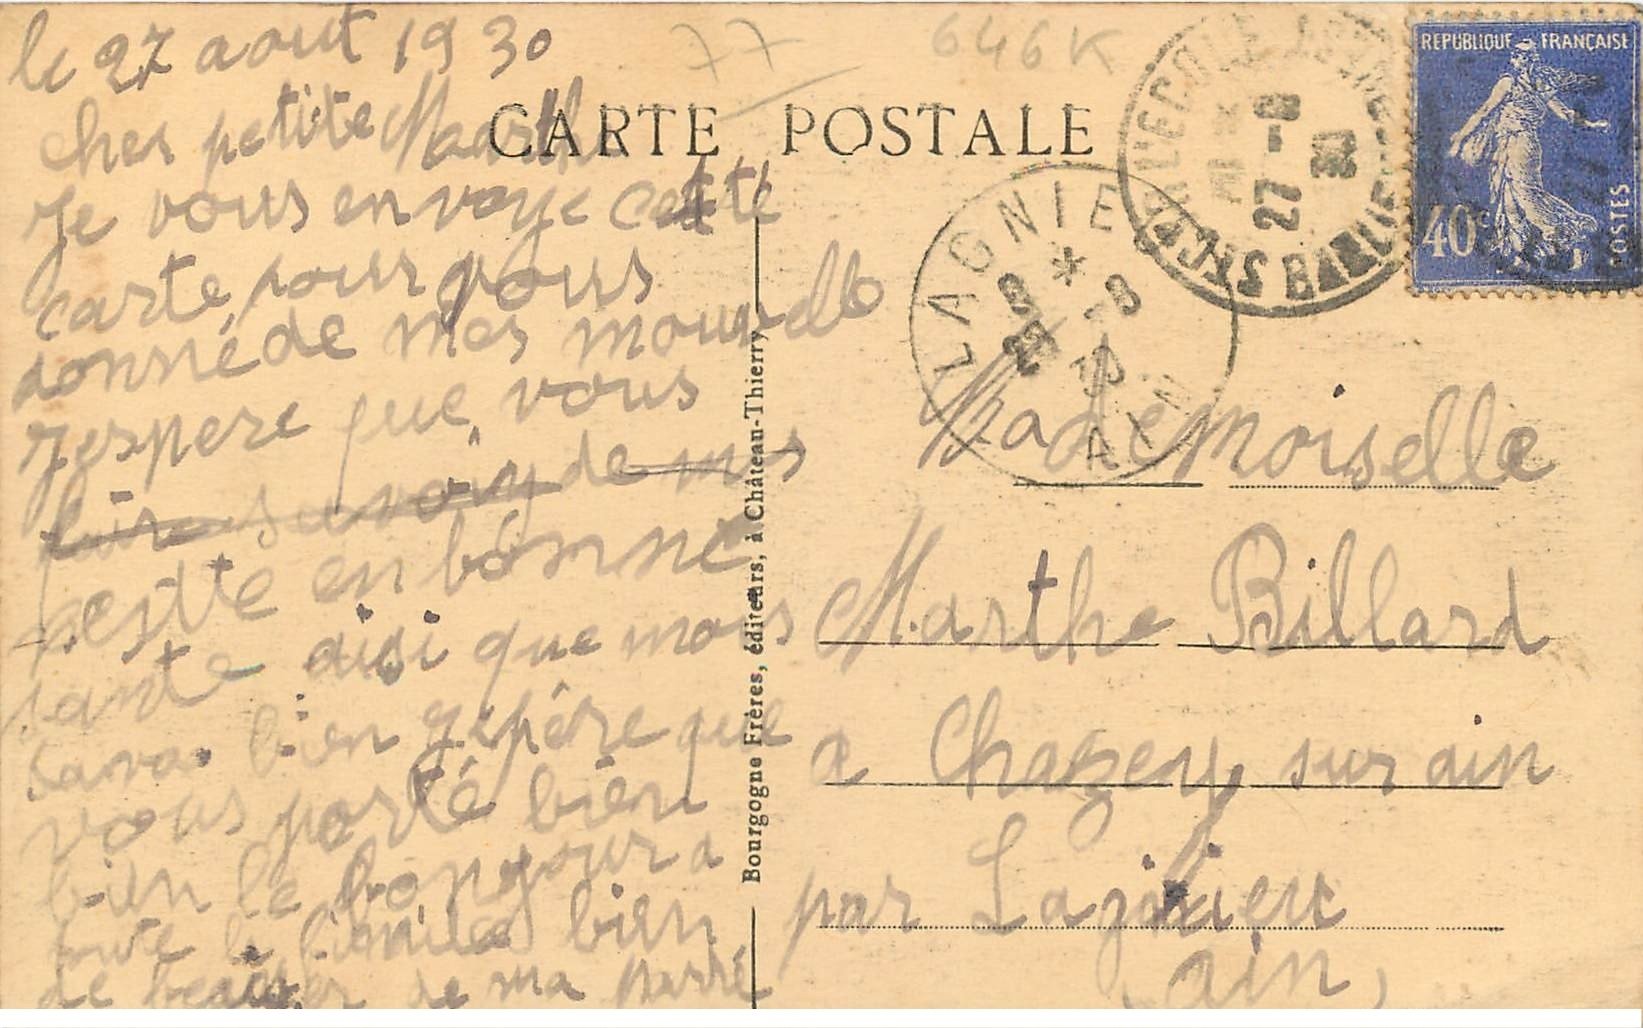 le 27 aout 1930
77
646K
CARTE POSTALE
REPUBLIQUE FRANÇAISE
40c
POSTES
27 -8
30
LAGNIEU
*
-8
30
AIN
cher petite Marthe
Je vous envoye cette
carte pour vous
donné de mes mouvelle
Jespere que vous
faire savoir de mes
reste en bonne
sante aisi que mois
sava bien Jespére que
vous porté bien
bien le bonjour a
toute la famille bien
de beaiser de ma parré
Bourgogne Frères, éditeurs, à Château-Thierry
Mademoiselle
Marthe Billard
a Chazey sur ain
par Lagnieu
ain,